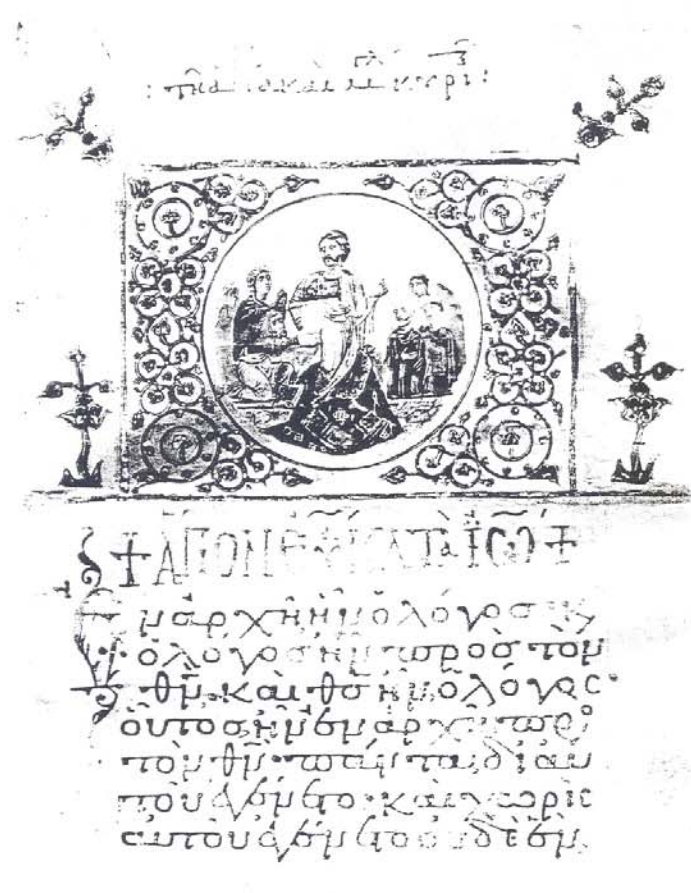 : τῆ ἁγία καὶ κυρι :
+ ΑΓΙΟΝ ΕΥ ΚΑΤΑ ΙΩ +
Ἐν ἀρχῆ ἦν ὁ λόγος κ
ὁ λόγος ἦν πρὸς τὸν
θν̄· καὶ θς̄ ἦν ὁ λόγος·
οὗτος ἦν ἐν ἀρχῆ πρὸ
τὸν θν̄· πάντα δι αὐ
τοῦ ἐγένετο· καὶ χωρὶς
αὐτοῦ ἐγένετο οὐδὲ ἕν